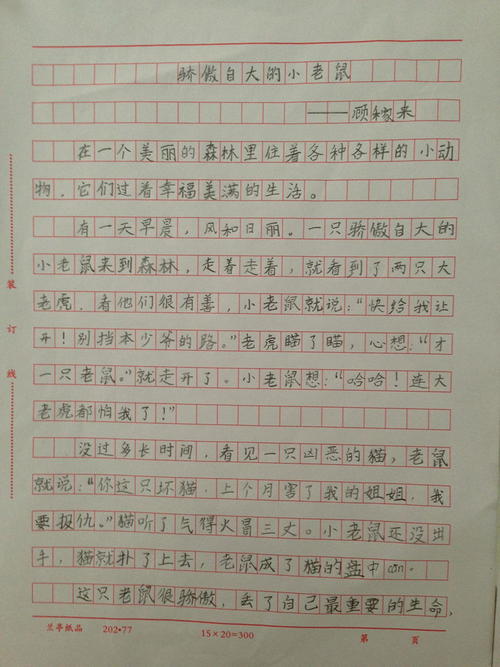 骄傲自大的小老鼠
——顾稼来
在一个美丽的森林里住着各种各样的小动
物，它们过着幸福美满的生活。
有一天早晨，风和日丽。一只骄傲自大的
小老鼠来到森林，走着走着，就看到了两只大
老虎，看他们很有善，小老鼠就说：“快给我让
开！别挡本少爷的路。”老虎瞄了瞄，心想：“才
一只老鼠。”就走开了。小老鼠想：“哈哈！连大
老虎都怕我了！”
没过多长时间，看见一只凶恶的猫，老鼠
就说：“你这只坏猫，上个月害了我的姐姐，我
要报仇。”猫听了气得火冒三丈。小老鼠还没出
手，猫就扑了上去，老鼠成了猫的盘中cān。
这只老鼠很骄傲，丢了自己最重要的生命，
装
订
线
兰亭纸品 202·77 15×20=300 第 页